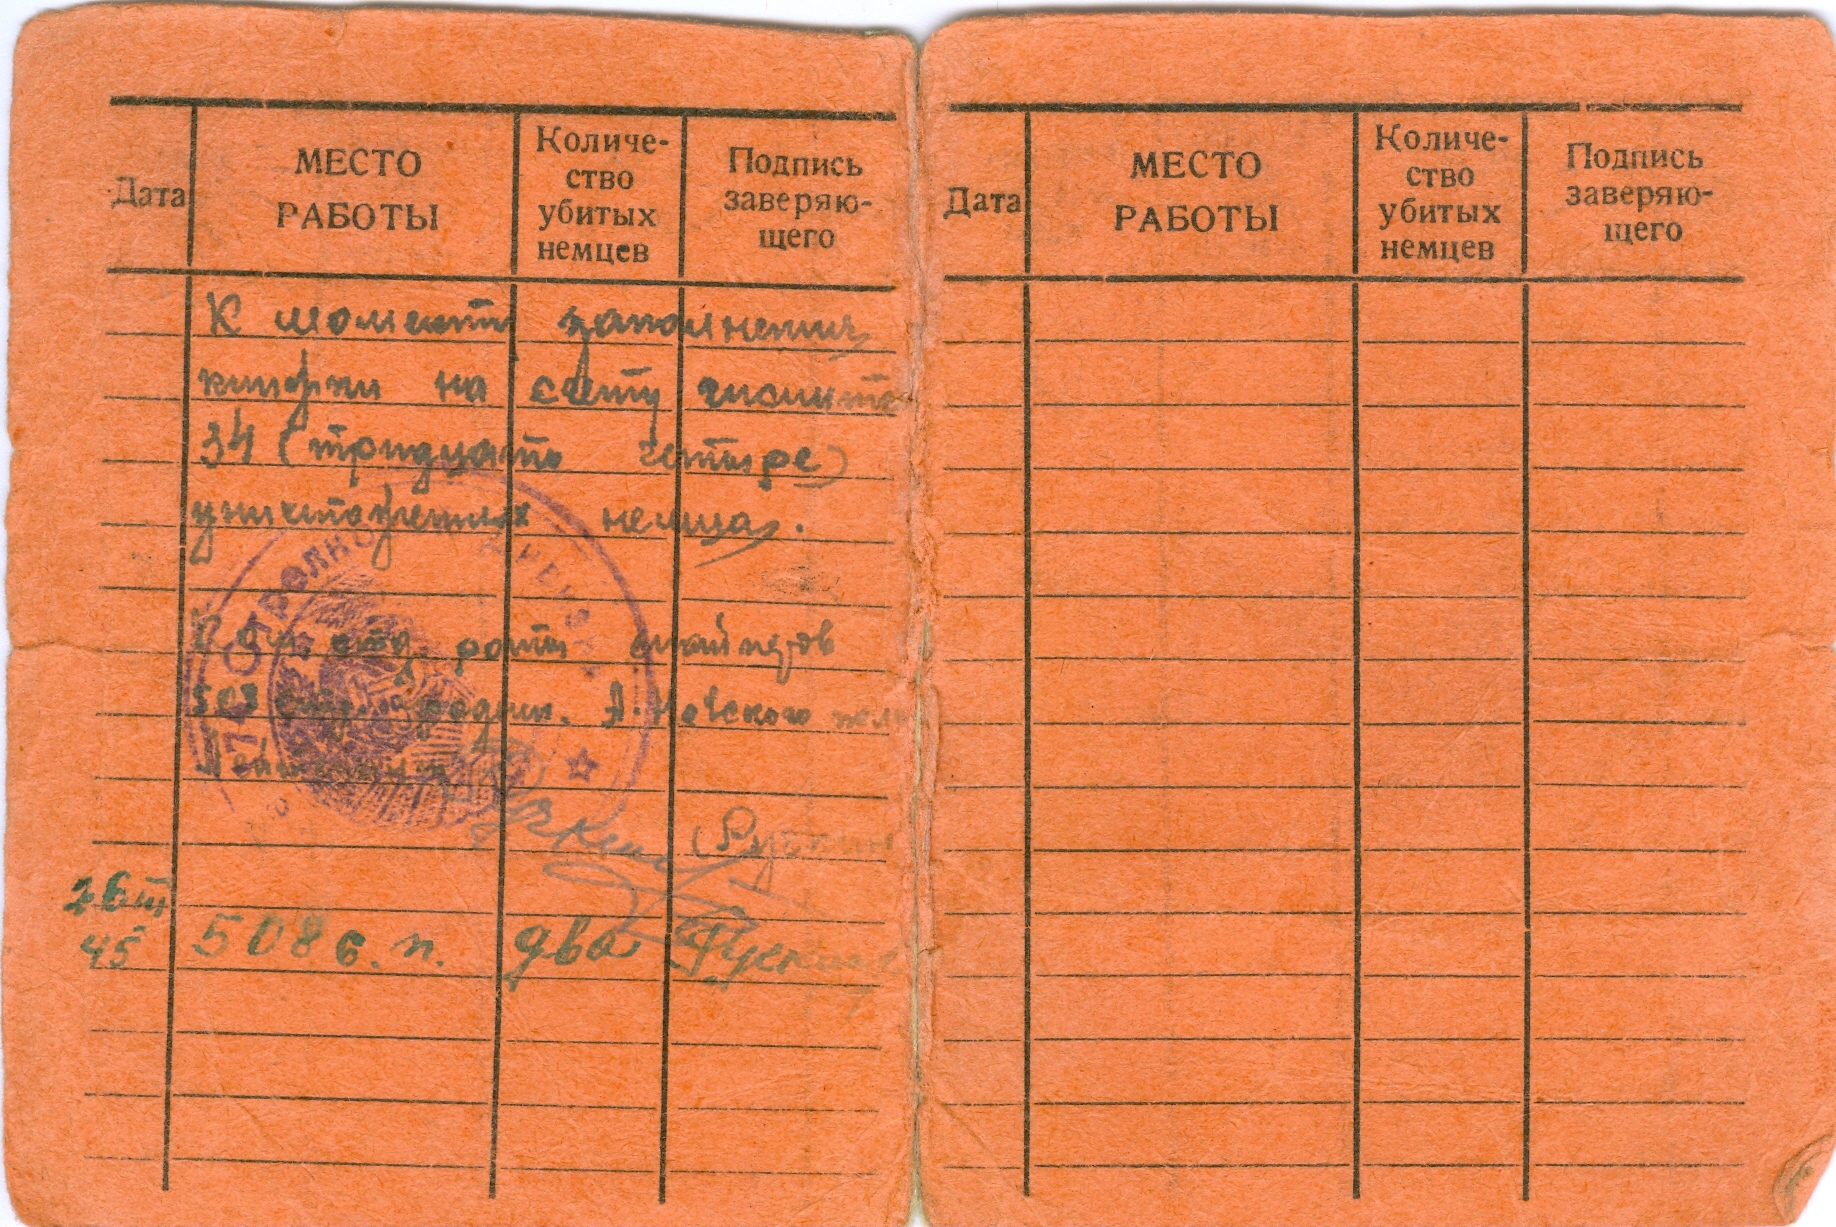 Дата
МЕСТО
РАБОТЫ
Количе-
ство
убитых
немцев
Подпись
заверяю-
щего
К моменту заполнения
книжки на счету числится
34 (тридцать четыре)
уничтоженных немца.
роты снайперов
508 стр. А. Невского
508 с. п. два
45
Дата
МЕСТО
РАБОТЫ
Количе-
ство
убитых
немцев
Подпись
заверяю-
щего